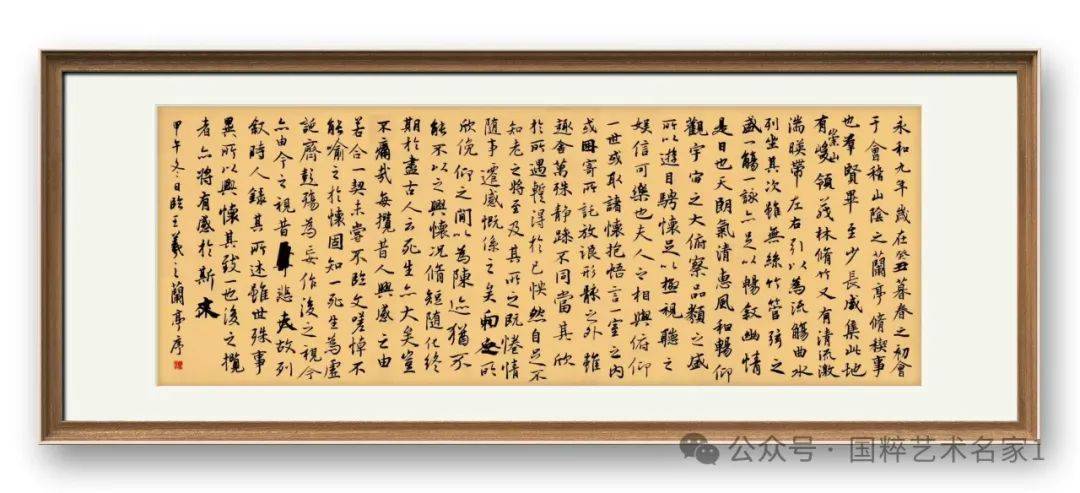 永和九年歲在癸丑暮春之初會
于會稽山陰之蘭亭脩稧事
也羣賢畢至少長咸集此地
有崇山峻領茂林脩竹又有清流激
湍暎帶左右引以為流觴曲水
列坐其次雖無絲竹管弦之
盛一觴一詠亦足以暢敘幽情
是日也天朗氣清惠風和暢仰
觀宇宙之大俯察品類之盛
所以遊目騁懷足以極視聽之
娛信可樂也夫人之相與俯仰
一世或取諸懷抱悟言一室之內
或因寄所託放浪形骸之外雖
趣舍萬殊靜躁不同當其欣
於所遇暫得於己怏然自足不
知老之將至及其所之既惓情
隨事遷感慨係之矣向之所
欣俛仰之間以為陳迹猶不
能不以之興懷況脩短隨化終
期於盡古人云死生亦大矣豈
不痛哉每攬昔人興感之由
若合一契未嘗不臨文嗟悼不
能喻之於懷固知一死生為虛
誕齊彭殤為妄作後之視今
亦由今之視昔悲夫故列
敘時人錄其所述雖世殊事
異所以興懷其致一也後之攬
者亦將有感於斯文
甲午冬日臨王羲之蘭亭序
公众号·国粹艺术名家1